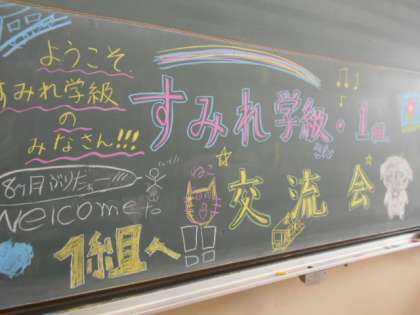 ようこそ
すみれ学級
の
みなさん!!!
8ヶ月ぶりだぁー!!!
Welcome to
1組へ
すみれ学級・1組
ねこ
交流会